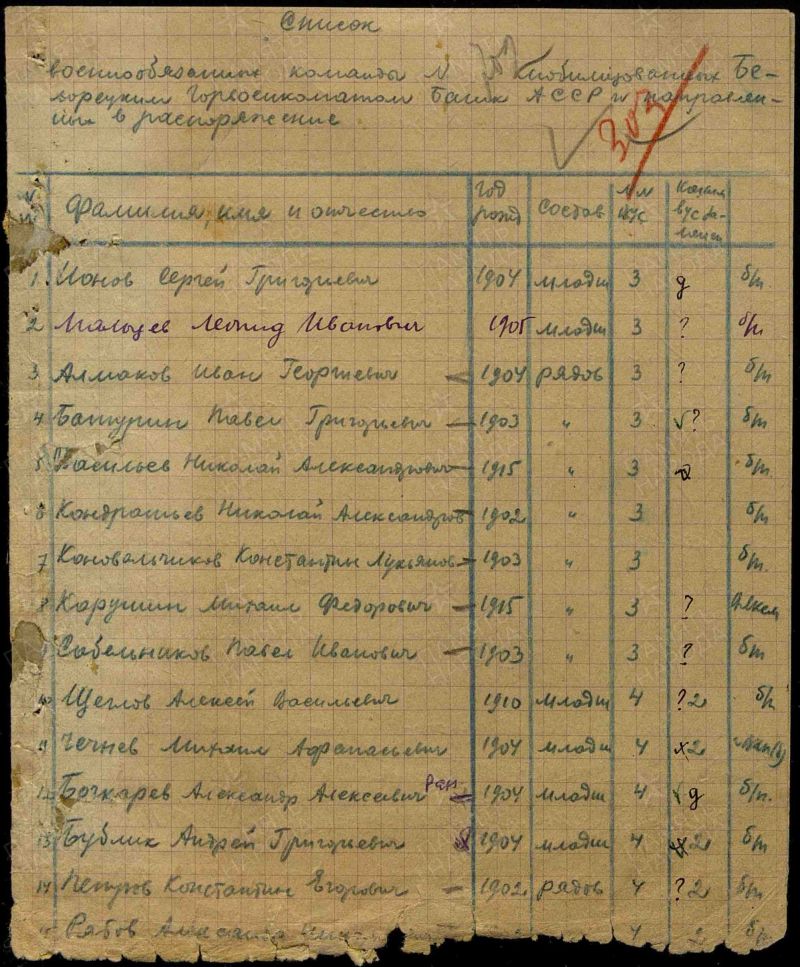 Список
военнообязанных команды N 303 мобилизованных Бе-
лорецким Горвоенкоматом Башк АССР и направлен-
ных в распоряжение
303
Фамилия, имя и отчество год рожд состав NN ВУС
1 Ионов Сергей Григорьевич 1904 младш 3 д б/п.
2 Мальцев Леонид Иванович 1905 младш 3 ? б/п
3 Алмаков Иван Георгиевич 1904 рядов 3 ? б/п
4 Батурин Павел Григорьевич 1903 " 3 √? б/п
5 Васильев Николай Александрович 1915 " 3 б/п.
6 Кондратьев Николай Александров 1902 " 3 б/п
7 Коновальчиков Константин Лукьянов 1903 " 3 б/п.
8 Карушин Михаил Федорович 1915 " 3 ?
9 Сабельников Павел Иванович 1903 " 3 ? б/п
10 Щеглов Алексей Васильевич 1910 младш 4 ? 2 б/п
11 Чечнев Михаил Афанасьевич 1904 младш 4 х2
12 Бочкарев Александр Алексеевич ран 1904 младш 4 √ д б/п.
13 Бублик Андрей Григорьевич 1904 младш 4 х2 б/п
14 Петров Константин Егорович 1902 рядов 4 ? 2 б/п
Рябов 4 2